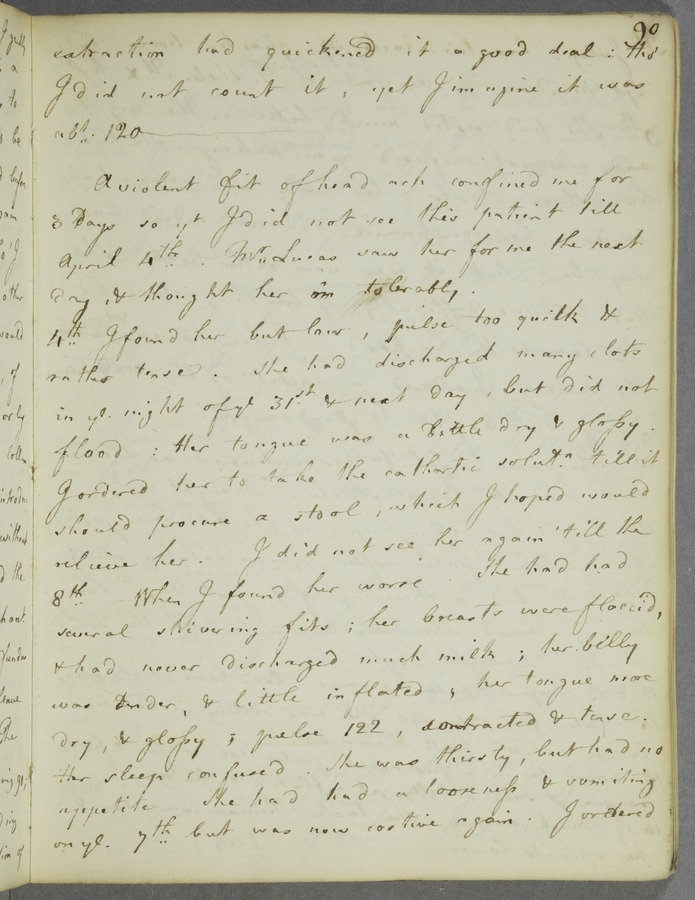 90
extraction had quickened it a good deal: tho'
I did not count it, yet I imagine it was
abt. 120
A violent fit of head ach confined me for
3 Days so yt I did not see this patient till
April 4th. Mr. Lucas saw her for me the next
Day, & thought her tolerably.
4th I found her but low, pulse too quick &
rather tense. She had discharged many clots
in ye. night of ye 31st & next day, but did not
flood: Her tongue was a little dry & glossy.
I ordered her to take the cathartic solutn. till it
should procure a stool, which I hoped would
relieve her. I did not see her again 'till the
8th When I found her worse. She had had
several shivering fits; her breasts were flaccid,
& had never discharged much milk; her belly
was tender, & little inflated; her tongue more
dry, & glossy; pulse 122, contracted & tense.
Her sleep confused. She was thirsty, but had no
appetite She had had a looseness & vomiting
on ye. 7th but was now costive again. I ordered